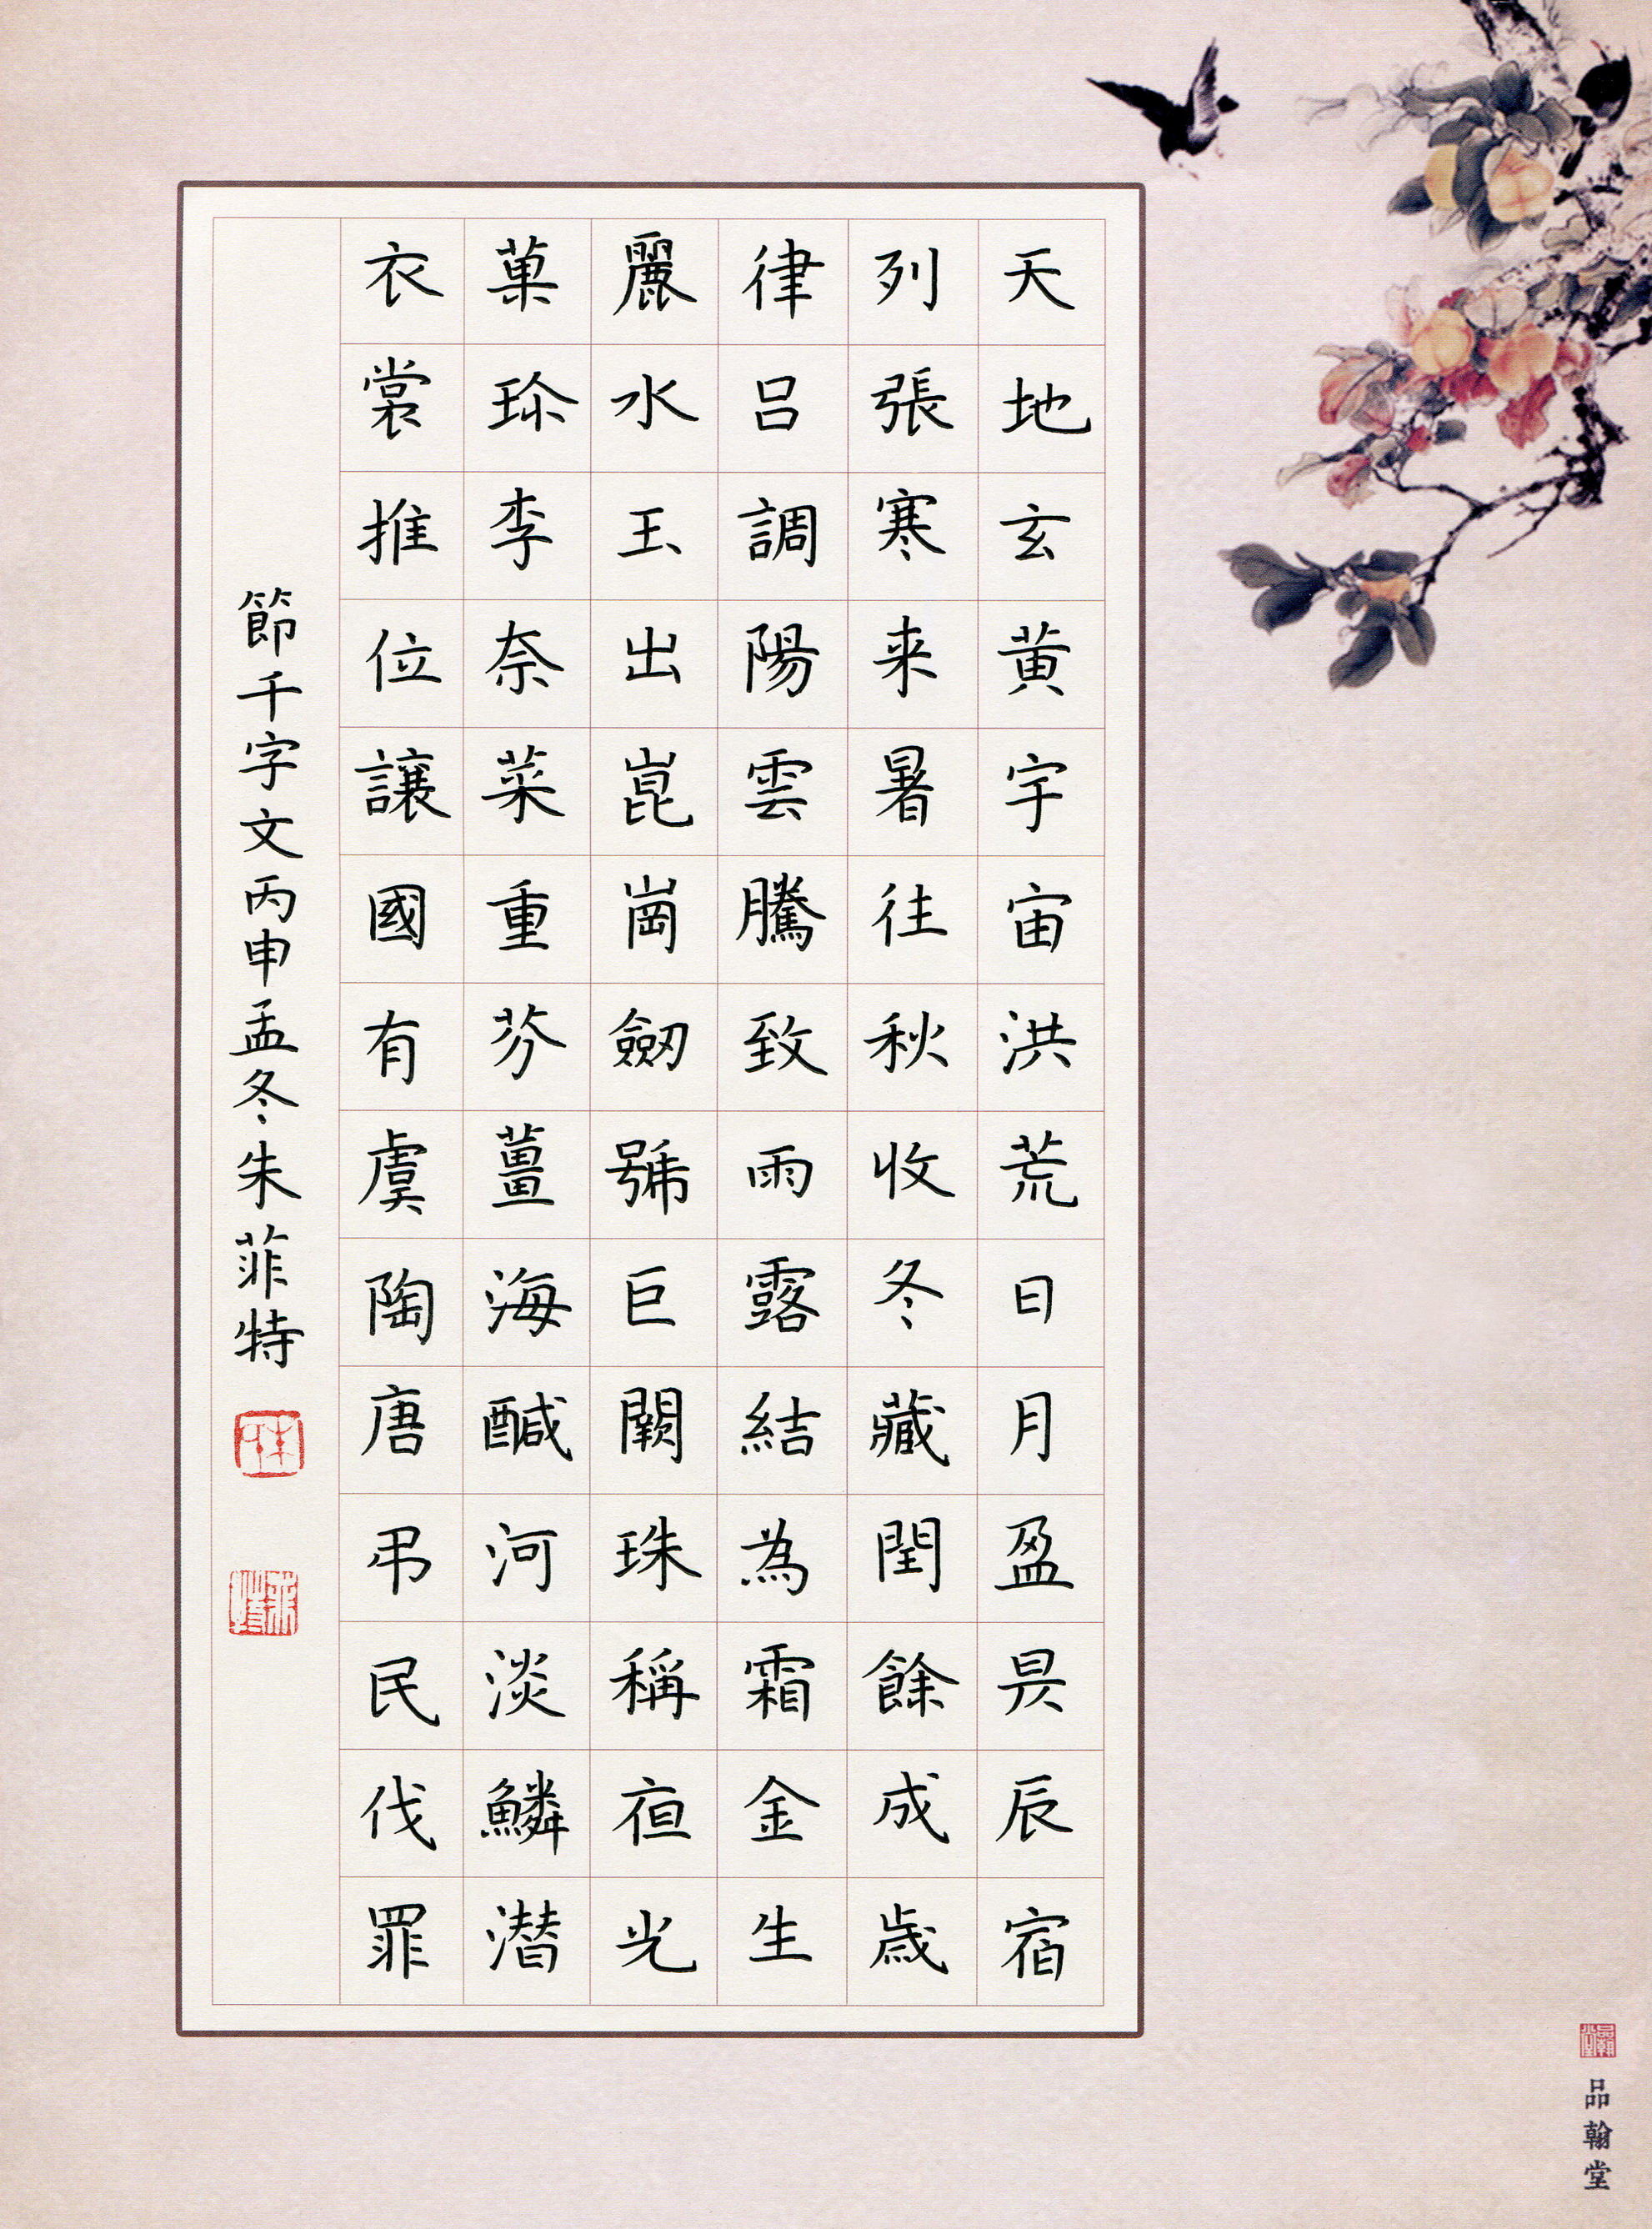 天地玄黄宇宙洪荒日月盈昃辰宿
列張寒来暑往秋收冬藏閏餘成歲
律呂調陽雲騰致雨露結為霜金生
麗水玉出崑崗劒號巨闕珠稱夜光
菓珎李奈菜重芥薑海醎河淡鱗潛
衣裳推位讓國有虞陶唐弔民伐罪
節千字文丙申孟冬朱菲特
品翰堂